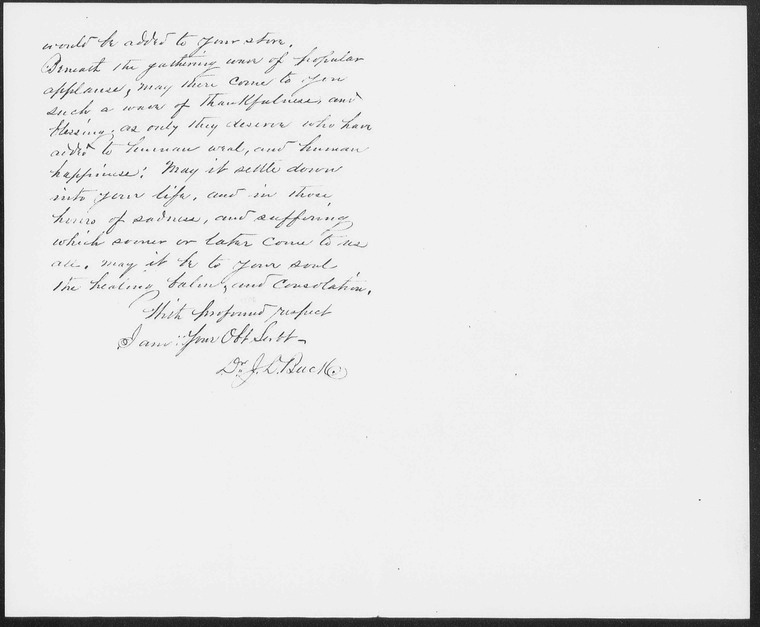 would be added to your store.
Beneath the gathering wave of popular
applause, may there come to you
such a wave of thankfulness, and
blessing, as only they deserve who have
aided to human weal, and human
happiness! May it settle down
into your life, and in those
hours of sadness, and suffering
which sooner or later come to us
all, may it be to your soul
the healing balm, and consolation.
With profound respect
I am: Your Obt Servt
Dr J. D. Buck